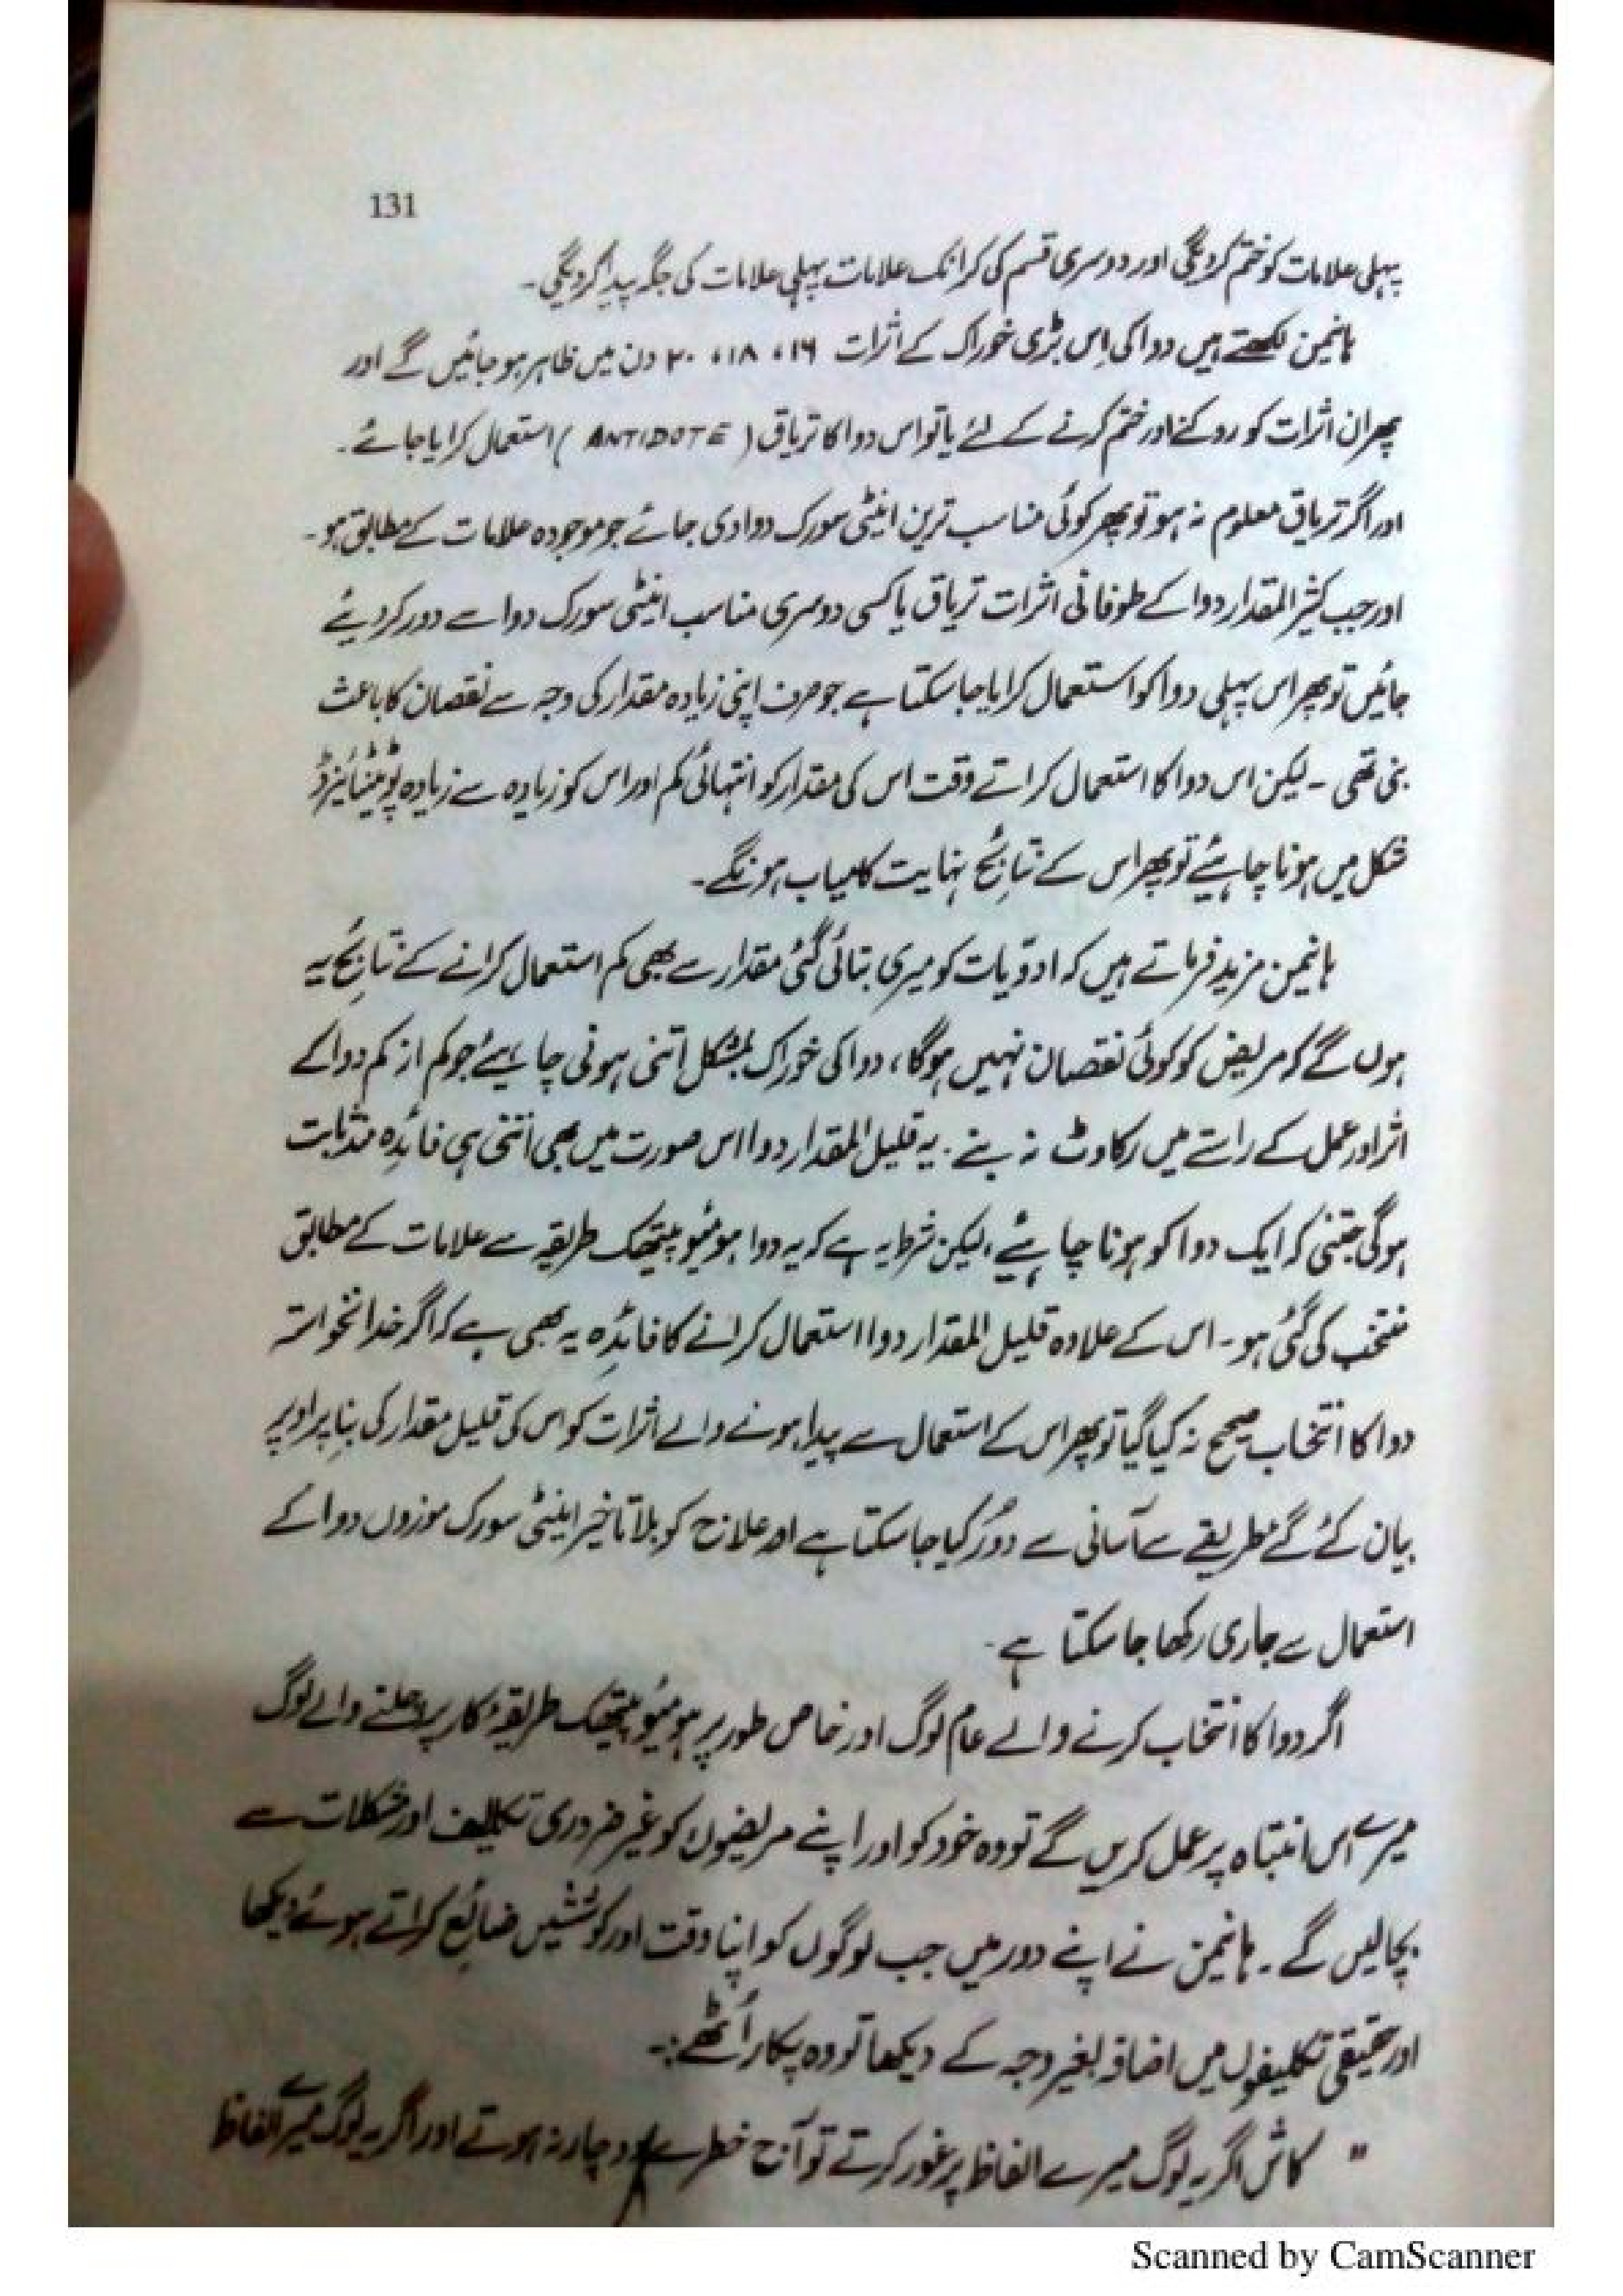 131
پہلی علامات کو ختم کردیگی اور دوسری قسم کی کرانک علامات پہلی علامات کی جگہ پیدا کردیگی۔
ہانیمن لکھتے ہیں دوا کی اِس بڑی خوراک کے اثرات ۱۶، ۱۸، ۲۰ دن میں ظاہر ہو جائیں گے اور
پھر ان اثرات کو روکنے اور ختم کرنے کے لئے یا تو اس دوا کا تریاق (ANTIDOTE) استعمال کرایا جائے۔
اور اگر تریاق معلوم نہ ہو تو پھر کوئی مناسب ترین اینٹی سورک دوا دی جائے جو موجودہ علامات کے مطابق ہو۔
اور جب کثیر المقدار دوا کے طوفانی اثرات تریاق یا کسی دوسری مناسب اینٹی سورک دوا سے دور کردیئے
جائیں تو پھر اس پہلی دوا کو استعمال کرایا جا سکتا ہے جو صرف اپنی زیادہ مقدار کی وجہ سے نقصان کا باعث
بنی تھی ۔ لیکن اس دوا کا استعمال کراتے وقت اس کی مقدار کو انتہائی کم اور اس کو زیادہ سے زیادہ پوٹینٹائیزڈ
شکل میں ہونا چاہیئے تو پھر اس کے نتائج نہایت کامیاب ہونگے۔
ہانیمن مزید فرماتے ہیں کہ ادویات کو میری بتائی گئی مقدار سے بھی کم استعمال کرانے کے نتائج یہ
ہوں گے کہ مریض کو کوئی نقصان نہیں ہوگا، دوا کی خوراک بمشکل اتنی ہونی چاہیئے جو کم از کم دوا کے
اثر اور عمل کے راستے میں رکاوٹ نہ بنے۔ یہ قلیل المقدار دوا اس صورت میں بھی اتنی ہی فائدہ مند ثابت
ہوگی جتنی کہ ایک دوا کو ہونا چاہیئے، لیکن شرط یہ ہے کہ یہ دوا ہومئیوپیتھک طریقہ سے علامات کے مطابق
منتخب کی گئی ہو۔ اس کے علاوہ قلیل المقدار دوا استعمال کرانے کا فائدہ یہ بھی ہے کہ اگر خدانخواستہ
دوا کا انتخاب صحیح نہ کیا گیا تو پھر اس کے استعمال سے پیدا ہونے والے اثرات کو اس کی قلیل مقدار کی بنا پر اوپر
بیان کئے گے طریقے سے آسانی سے دُور کیا جا سکتا ہے اور علاج کو بلا تاخیر اینٹی سورک موزوں دوا کے
استعمال سے جاری رکھا جا سکتا ہے۔
اگر دوا کا انتخاب کرنے والے عام لوگ اور خاص طور پر ہومئیوپیتھک طریقۂ کار پر چلنے والے لوگ
میرے اس انتباہ پر عمل کریں گے تو وہ خود کو اور اپنے مریضوں کو غیر ضروری تکالیف اور مشکلات سے
بچالیں گے ۔ ہانیمن نے اپنے دور میں جب لوگوں کو اپنا وقت اور کوششیں ضائع کراتے ہوئے دیکھا
اور حقیقی تکلیفوں میں اضافہ بغیر وجہ کے دیکھا تو وہ پکار اُٹھے:۔
" کاش اگر یہ لوگ میرے الفاظ پر غور کرتے تو آج خطرے دوچار نہ ہوتے اور اگر یہ لوگ میرے الفاظ
Scanned by CamScanner